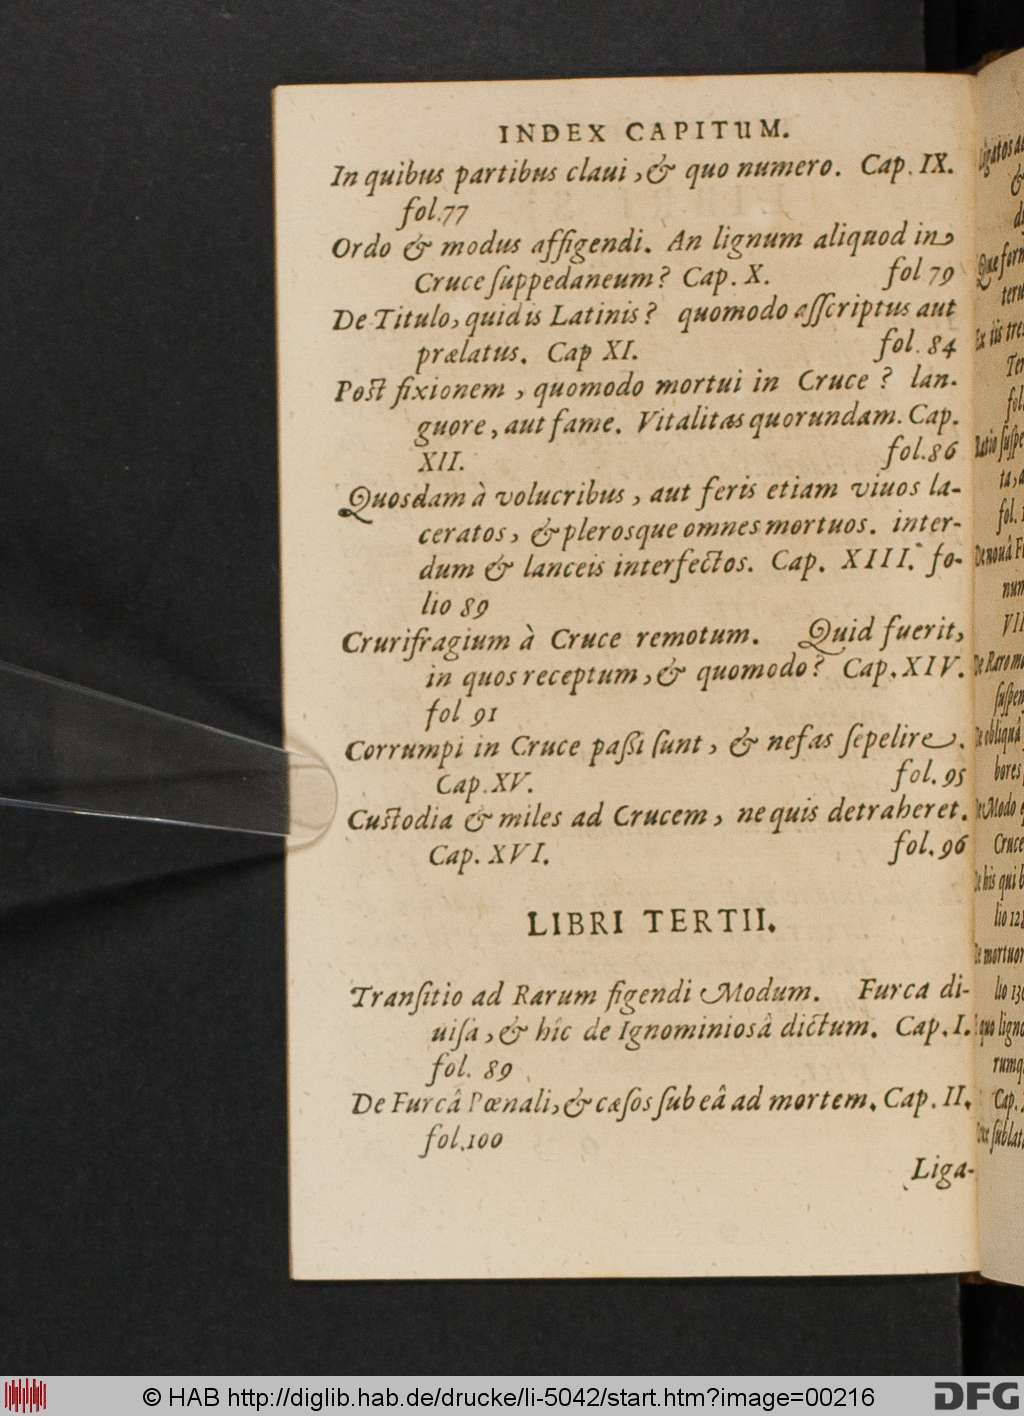 INDEX CAPITUM.
In quibus partibus claui, & quo numero. Cap. IX.
fol.77
Ordo & modus affigendi. An lignum aliquod in
Cruce ſuppedaneum? Cap. X. fol 79
De Titulo, quid is Latinis? quomodo aſſcriptus aut
prælatus. Cap XI. fol. 84
Post fixionem, quomodo mortui in Cruce? lan-
guore, aut fame. Vitalitas quorundam. Cap.
XII. fol.86
Quosdam à volucribus, aut feris etiam viuos la-
ceratos, & plerosque omnes mortuos. inter-
dum & lanceis interfectos. Cap. XIII. fo-
lio 89
Crurifragium à Cruce remotum. Quid fuerit,
in quos receptum, & quomodo? Cap. XIV.
fol 91
Corrumpi in Cruce paſsi ſunt, & nefas ſepelire.
Cap. XV. fol. 95
Custodia & miles ad Crucem, ne quis detraheret.
Cap. XVI. fol. 96
LIBRI TERTII.
Tranſitio ad Rarum figendi Modum. Furca di-
uiſa, & hîc de Ignominiosâ dictum. Cap. I.
fol. 89
De Furcâ Pœnali, & cæſos ſub eâ ad mortem. Cap. II.
fol.100
Liga-
© HAB http://diglib.hab.de/drucke/li-5042/start.htm?image=00216
DFG